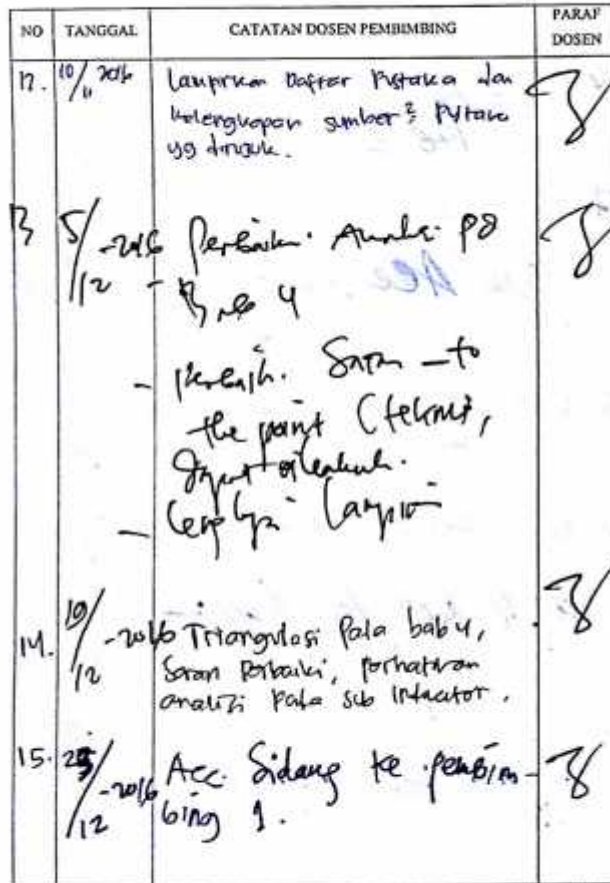 NO TANGGAL CATATAN DOSEN PEMBIMBING PARAF DOSEN
12. 10/11 2016 Lampirkan Daftar Pustaka dan
kelengkapan sumber² Pustaka
yg dirujuk.
13 5/12 -2016 Perbaiki Analisis pd
- Bab 4
- Perbaiki Saran - to
the point (teknis,
dapat dilakukan.
- Lengkapi Lampiran
14. 19/12 -2016 Triangulasi Pada bab 4,
Saran Perbaiki, perhatikan
analisis Pada sub Indicator.
15. /12 -2016 Acc. Sidang ke pembim-
bing 1.